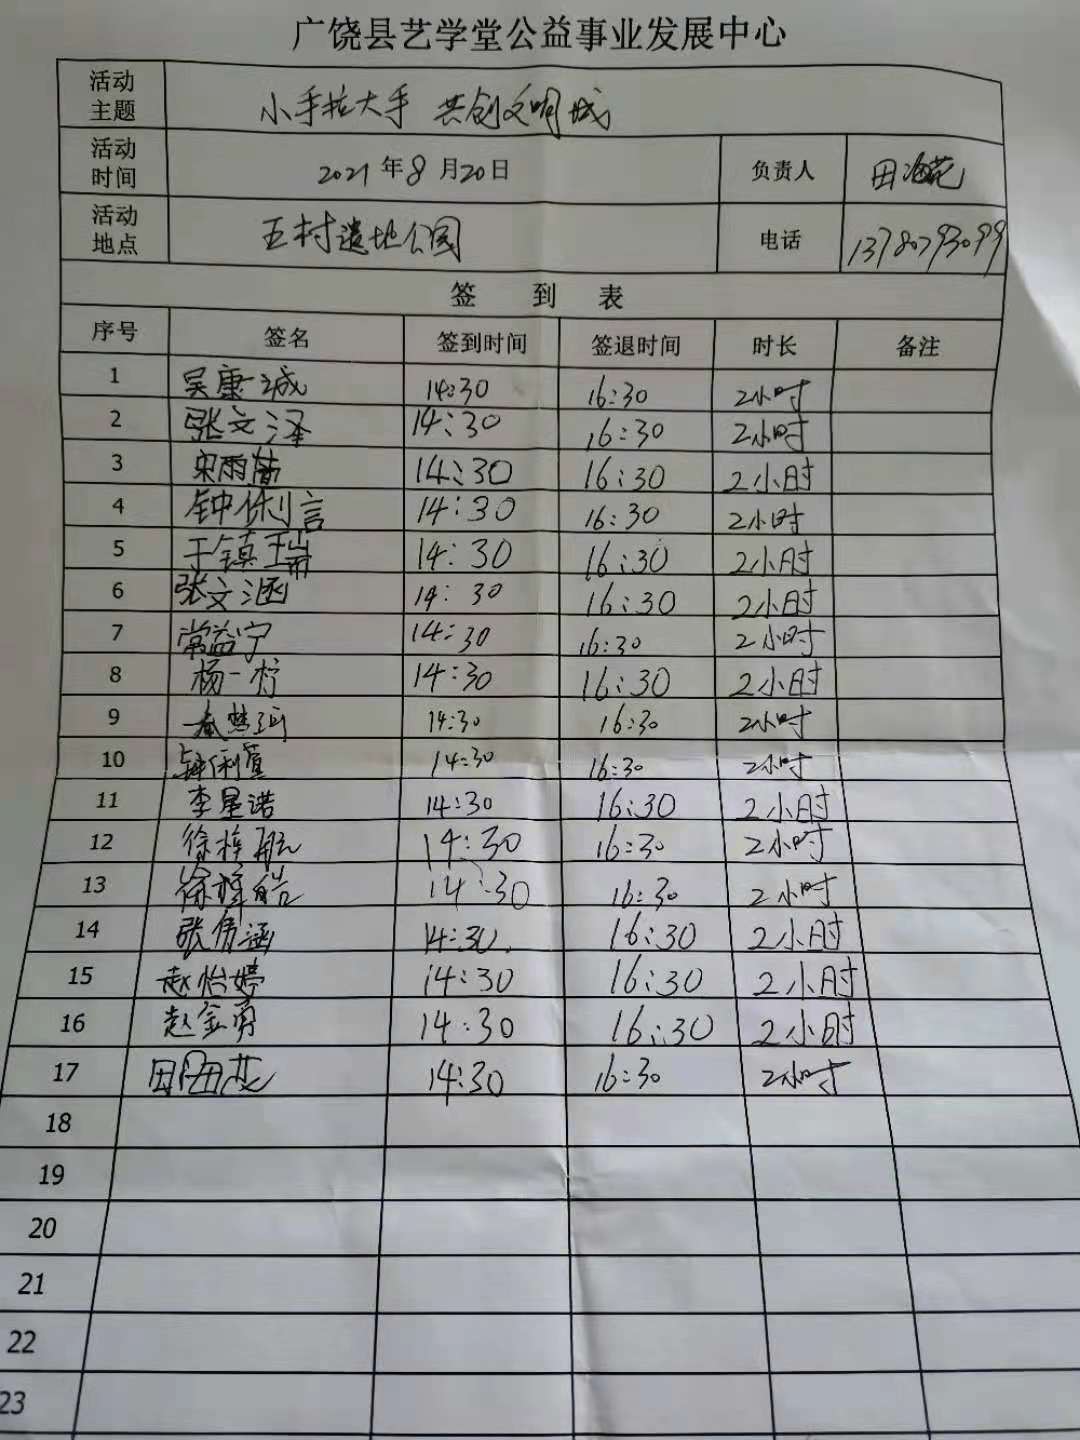 广饶县艺学堂公益事业发展中心
活动主题 小手拉大手 共创文明城
活动时间 2021年8月20日 负责人 田海花
活动地点 五村遗地公园 电话 13780793099
签到表
序号 签名 签到时间 签退时间 时长 备注
1 吴康诚 14:30 16:30 2小时
2 张文泽 14:30 16:30 2小时
3 宋雨 14:30 16:30 2小时
4 钟俐言 14:30 16:30 2小时
5 于镇瑞 14:30 16:30 2小时
6 张文涵 14:30 16:30 2小时
7 常益宁 14:30 16:30 2小时
8 杨一柠 14:30 16:30 2小时
9 14:30 16:30 2小时
10 14:30 16:30 2小时
11 李星诺 14:30 16:30 2小时
12 徐梓航 14:30 16:30 2小时
13 徐梓皓 14:30 16:30 2小时
14 张倩涵 14:30 16:30 2小时
15 赵怡婷 14:30 16:30 2小时
16 赵金勇 14:30 16:30 2小时
17 田 14:30 16:30 2小时
18
19
20
21
22
23